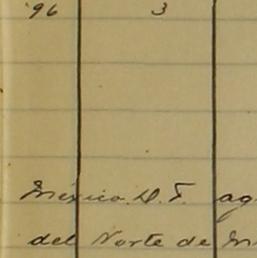 '96 3
México D. F. ag
del Norte de M